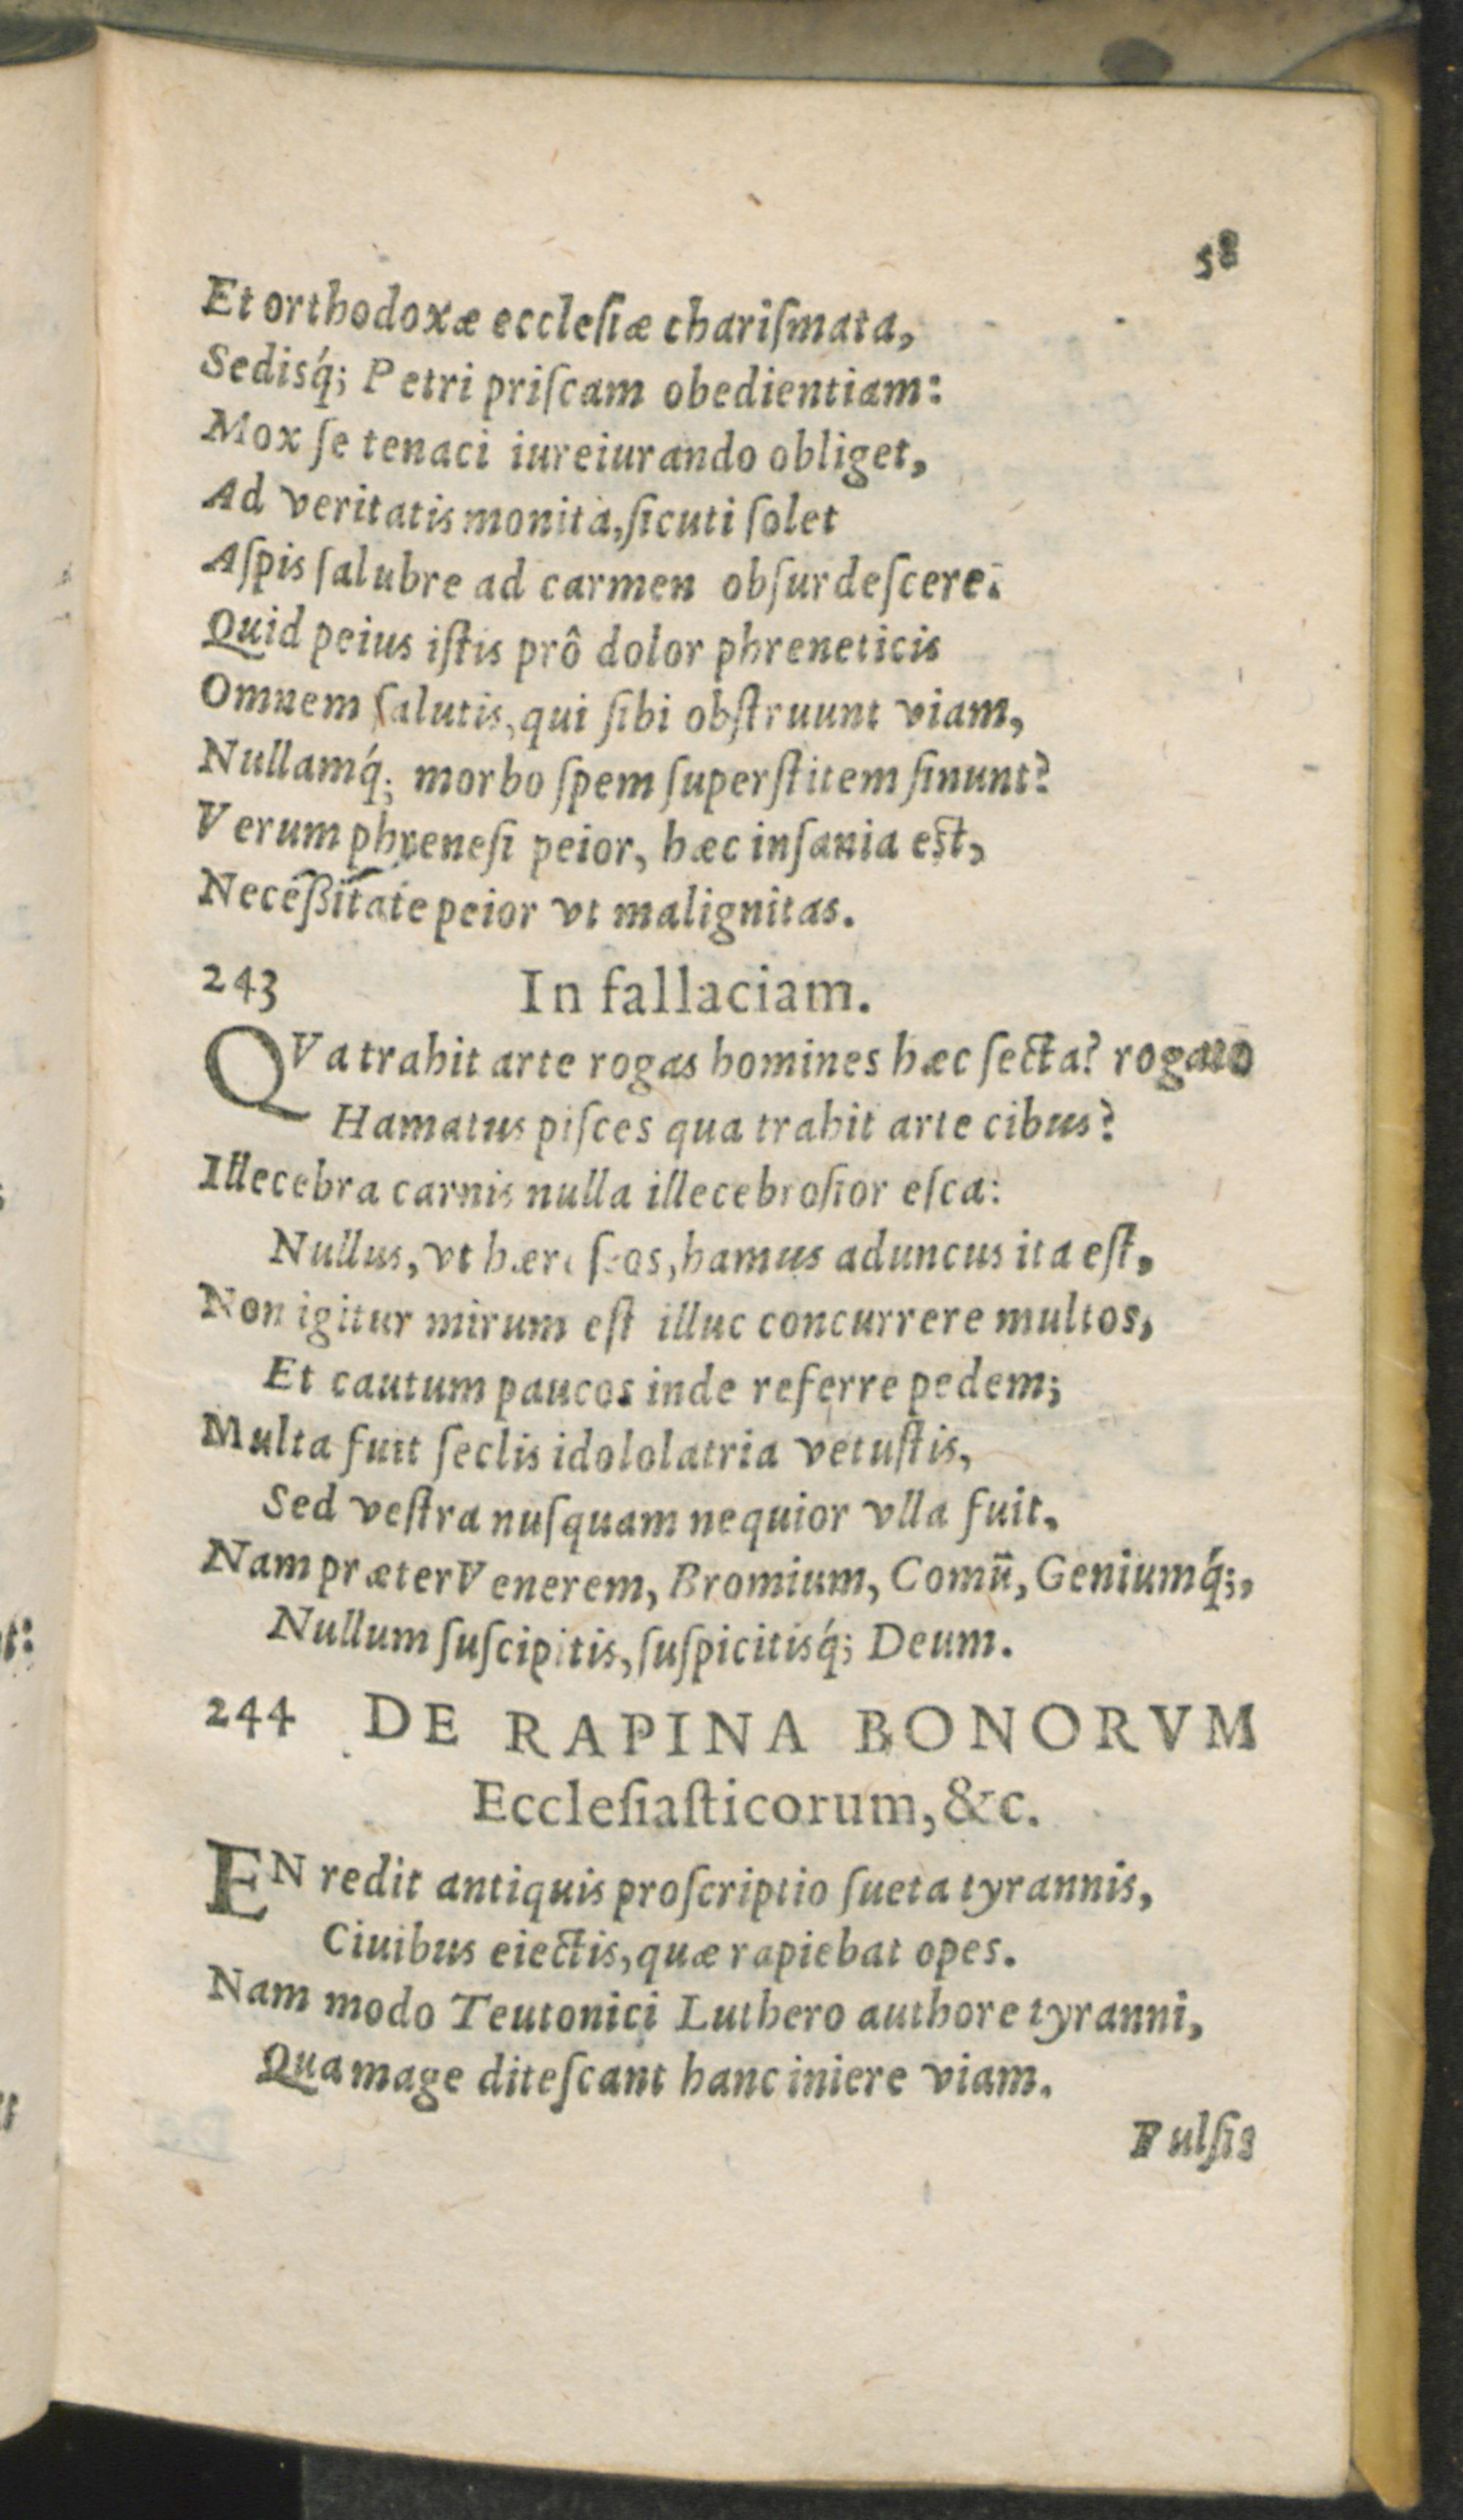 58
Et orthodoxæ ecclesiæ chariſmata,
Sedisq́; Petri priſcam obedientiam:
Mox ſe tenaci iureiurando obliget,
Ad veritatis monita, ſicuti ſolet
Aſpis ſalubre ad carmen obſurdeſcere.
Quid peius iſtis prô dolor phreneticis
Omnem ſalutis, qui ſibi obſtruunt viam,
Nullamq́; morbo ſpem ſuperſtitem ſinunt?
Verum phreneſi peior, hæc inſania est,
Neceßitate peior vt malignitas.
243 In fallaciam.
QVa trahit arte rogas homines hæc ſecta? rogato
Hamatus piſces qua trahit arte cibus?
Illecebra carnis nulla illecebroſior eſca:
Nullus, vt hæreſeos, hamus aduncus ita eſt,
Non igitur mirum eſt illuc concurrere multos,
Et cautum paucos inde referre pedem;
Multa fuit ſeclis idololatria vetuſtis,
Sed veſtra nuſquam nequior vlla fuit,
Nam præter Venerem, Bromium, Comū, Geniumq́;,
Nullum ſuſcipitis, ſuſpicitisq́; Deum.
244 DE RAPINA BONORVM
Eccleſiaſticorum, &c.
EN redit antiquis proſcriptio ſueta tyrannis,
Ciuibus eiectis, quæ rapiebat opes.
Nam modo Teutonici Luthero authore tyranni,
Qua mage diteſcant hanc iniere viam.
Pulſis